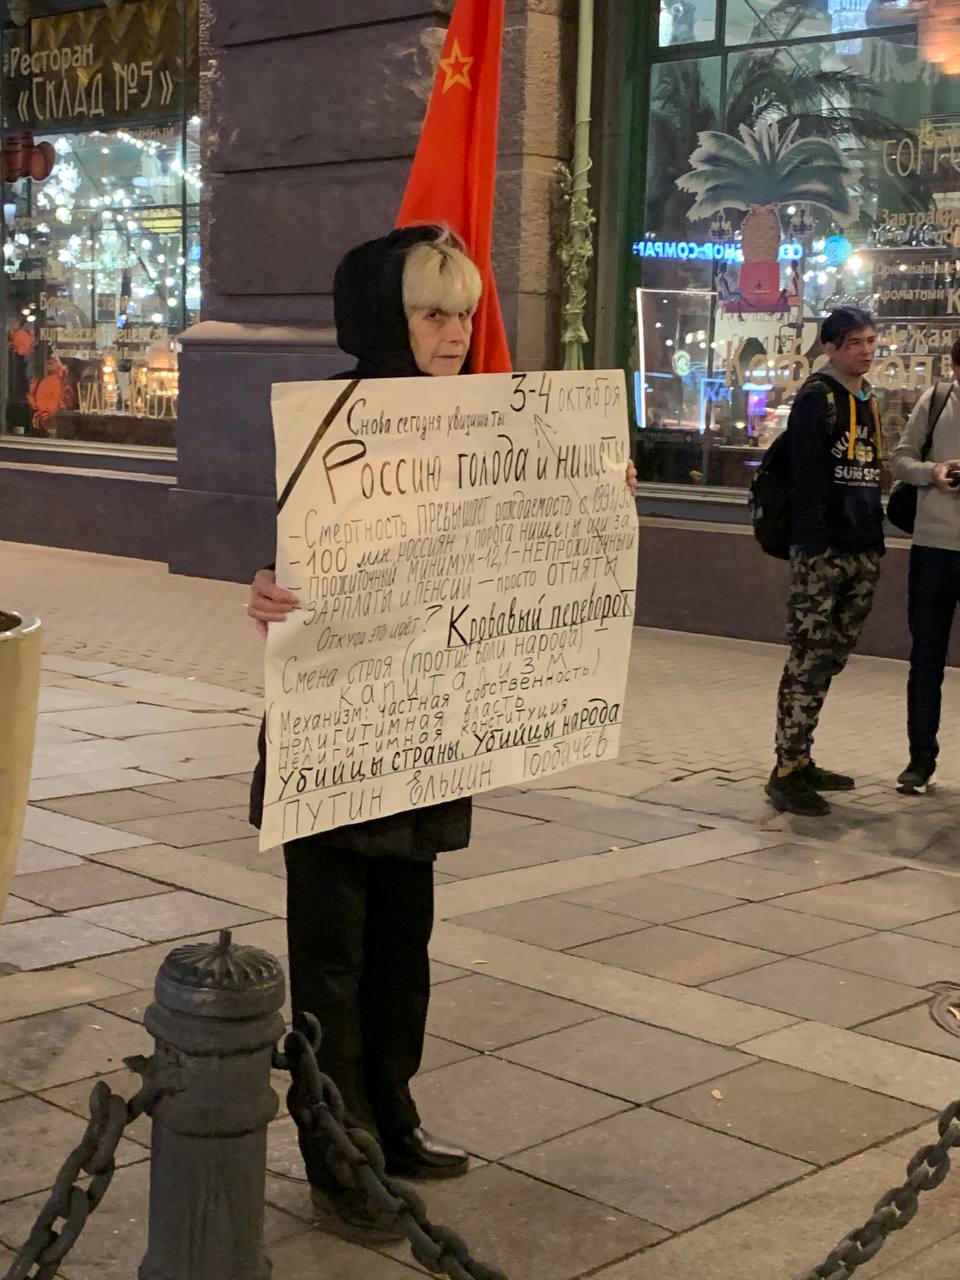 Ресторан
«СКЛАД №5»
3-4 октября
Снова сегодня увидишь ты
Россию голода и нищеты
- Смертность превышает рождаемость с 1991/
- 100 млн. россиян у порога нищеты или за
- Прожиточный минимум - 12,1 - НЕПРОЖИТОЧНЫЙ
- ЗАРПЛАТЫ И ПЕНСИИ - просто ОТНЯТЫ
Откуда это идёт? Кровавый переворот
Смена строя (против воли народа) -
капитализм
(Механизм: частная собственность)
нелигитимная власть
нелигитимная конституция
Убийцы страны, Убийцы народа
ПУТИН Ельцин Горбачёв
SHOP-COMPA
Завтрак